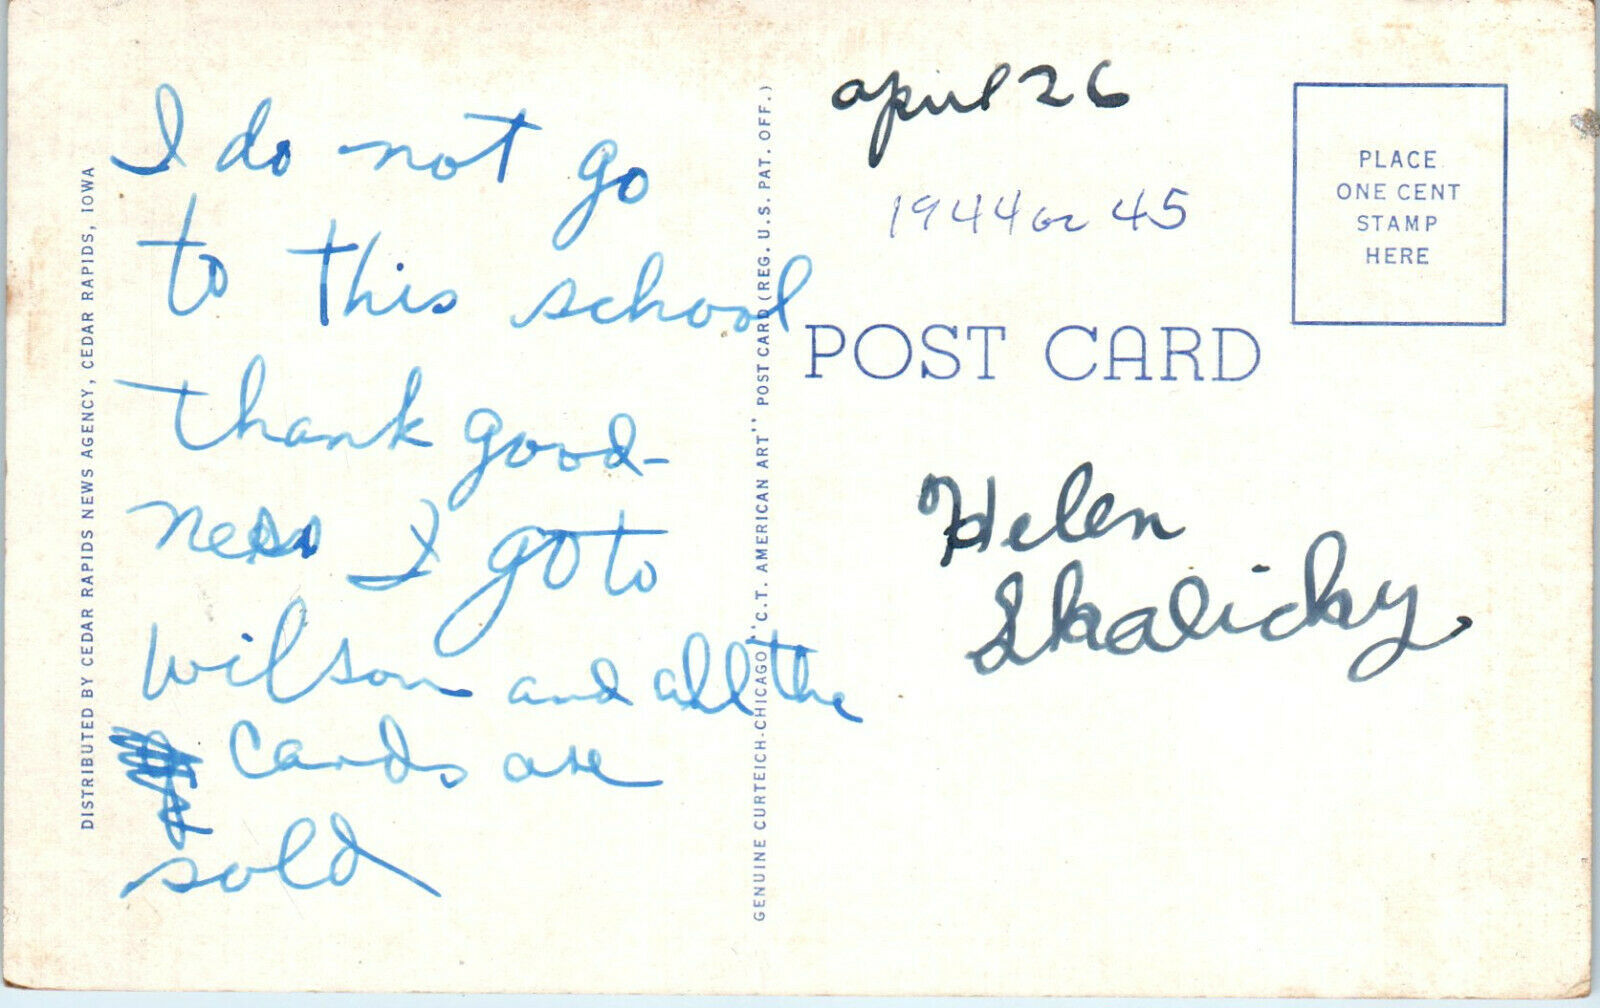 DISTRIBUTED BY CEDAR RAPIDS NEWS AGENCY, CEDAR RAPIDS, IOWA
I do not go
to this school
thank good-
ness I go to
Wilson and all the
cards are
sold
GENUINE CURTEICH-CHICAGO "C.T. AMERICAN ART" POST CARD (REG. U.S. PAT. OFF.)
april 26
1944 or 45
PLACE
ONE CENT
STAMP
HERE
POST CARD
Helen
Skalicky